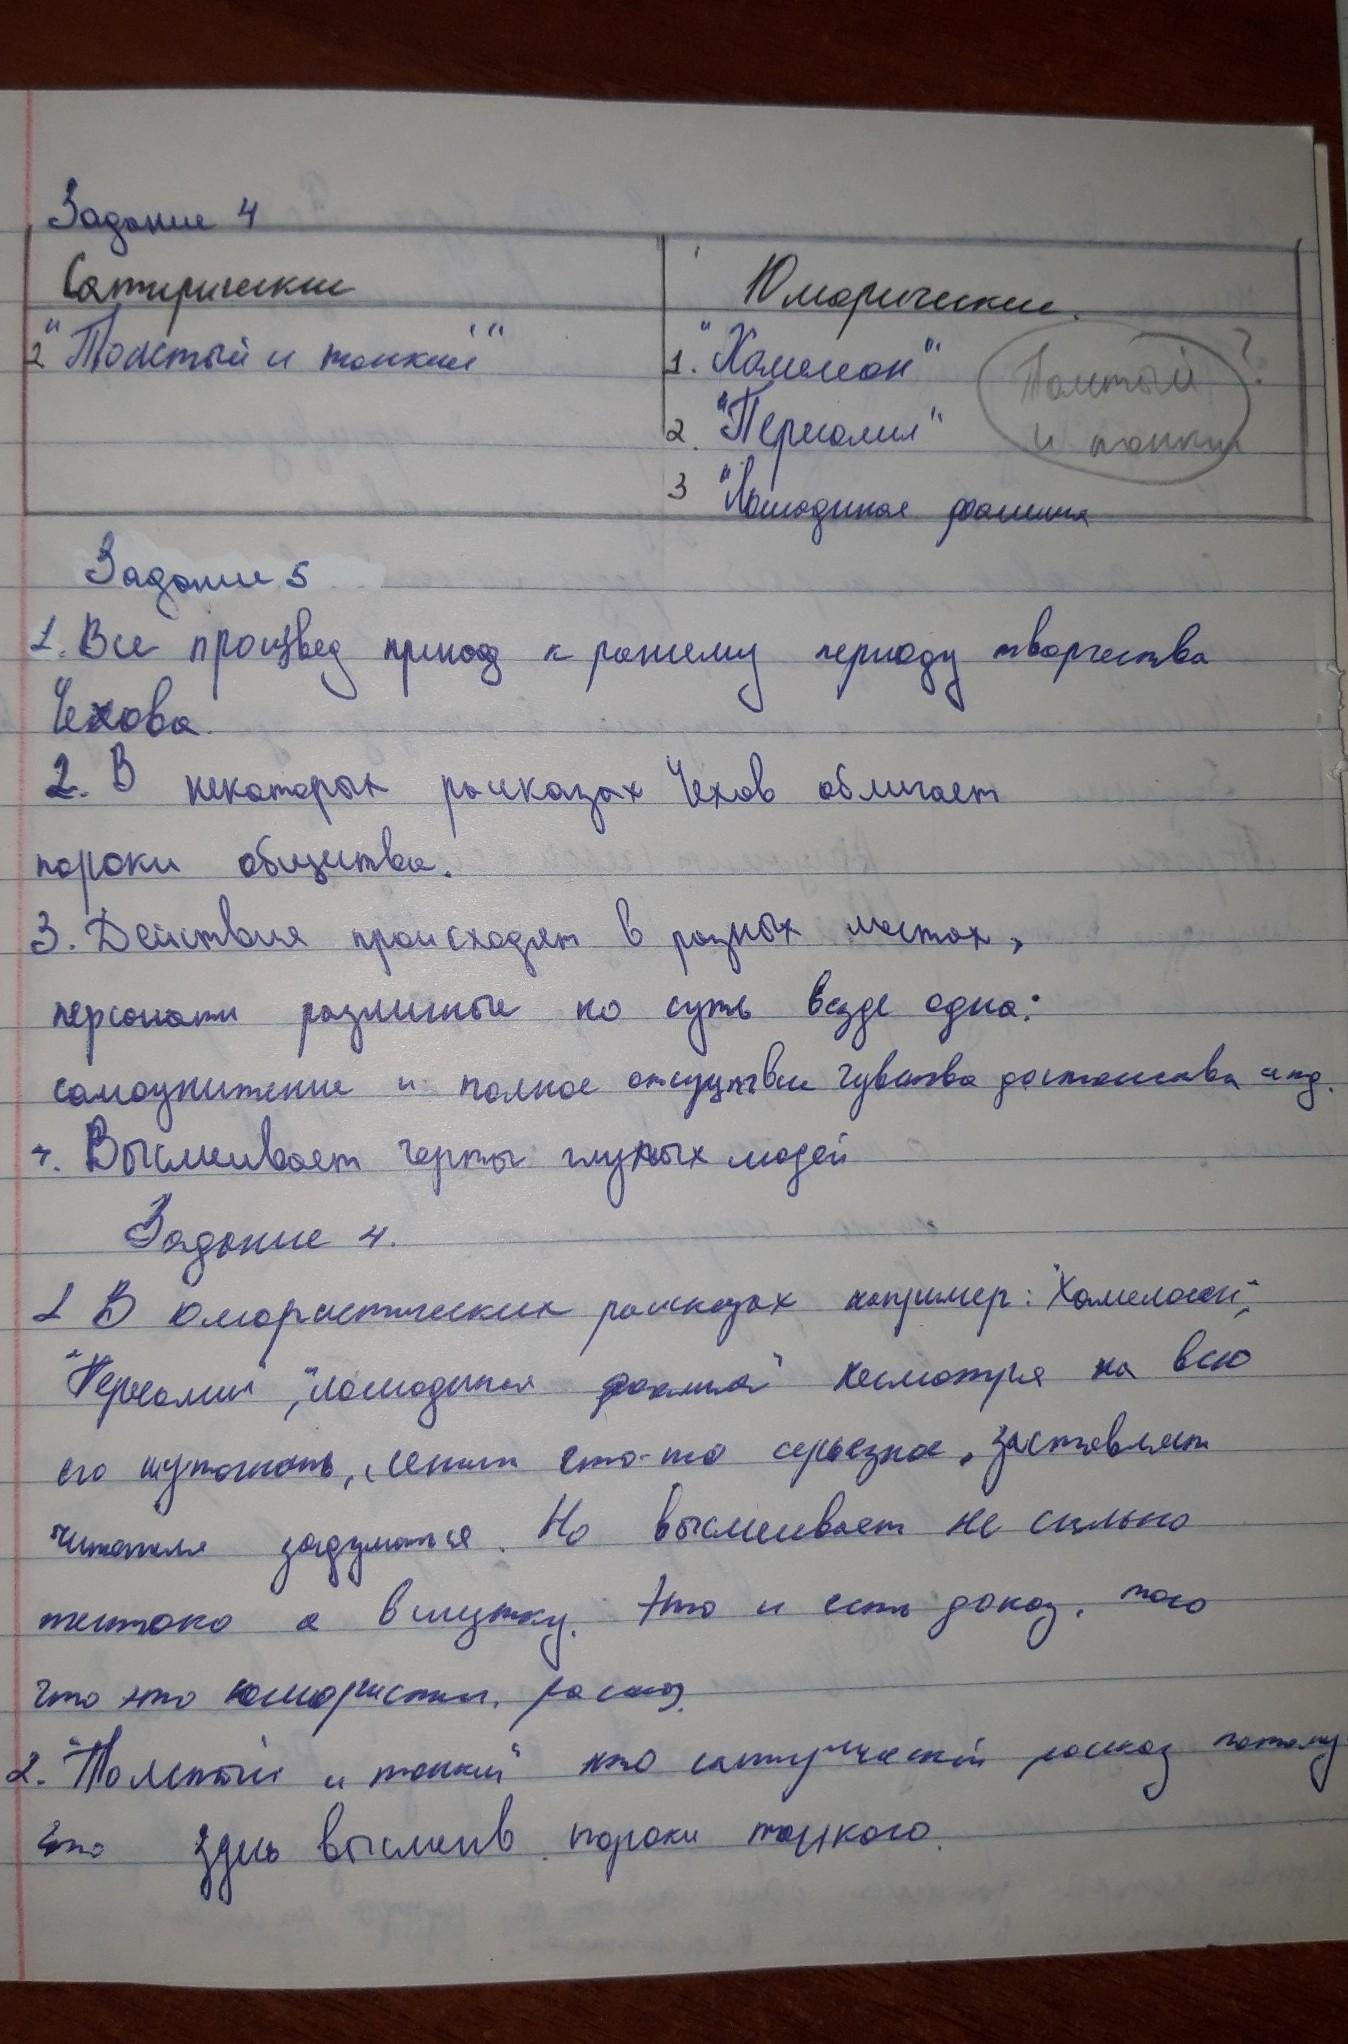 Задание 4
Сатирические
Юморические.
2 "Толстый и тонкий"
1. "Хамелеон"
Толстый ?
2. "Пересолил"
и тонкий
3 "Лошадиная фамилия
Задание 5
1. Все произвед принад к раннему периоду творчества
Чехова.
2. В некоторых рассказах Чехов обличает
пороки общества.
3. Действия происходят в разных местах,
персонажи различные но суть везде одна:
самоунижение и полное отсутствие чувства достоинства итд.
4. Высмеивает черты глупых людей
Задание 4.
1 В юмористических рассказах например: "Хамелеон",
"Пересолил", "лошадиная фамилия" несмотря на всю
его шуточность, что-то серьезное, заставляет
читателя задуматься. Но высмеивает не сильно
жестоко а в шутку. Это и есть доказ. того
что это юмористич. рассказ.
2. "Толстый и тонкий" это сатирический рассказ потому
что здесь высмеив. пороки тонкого.